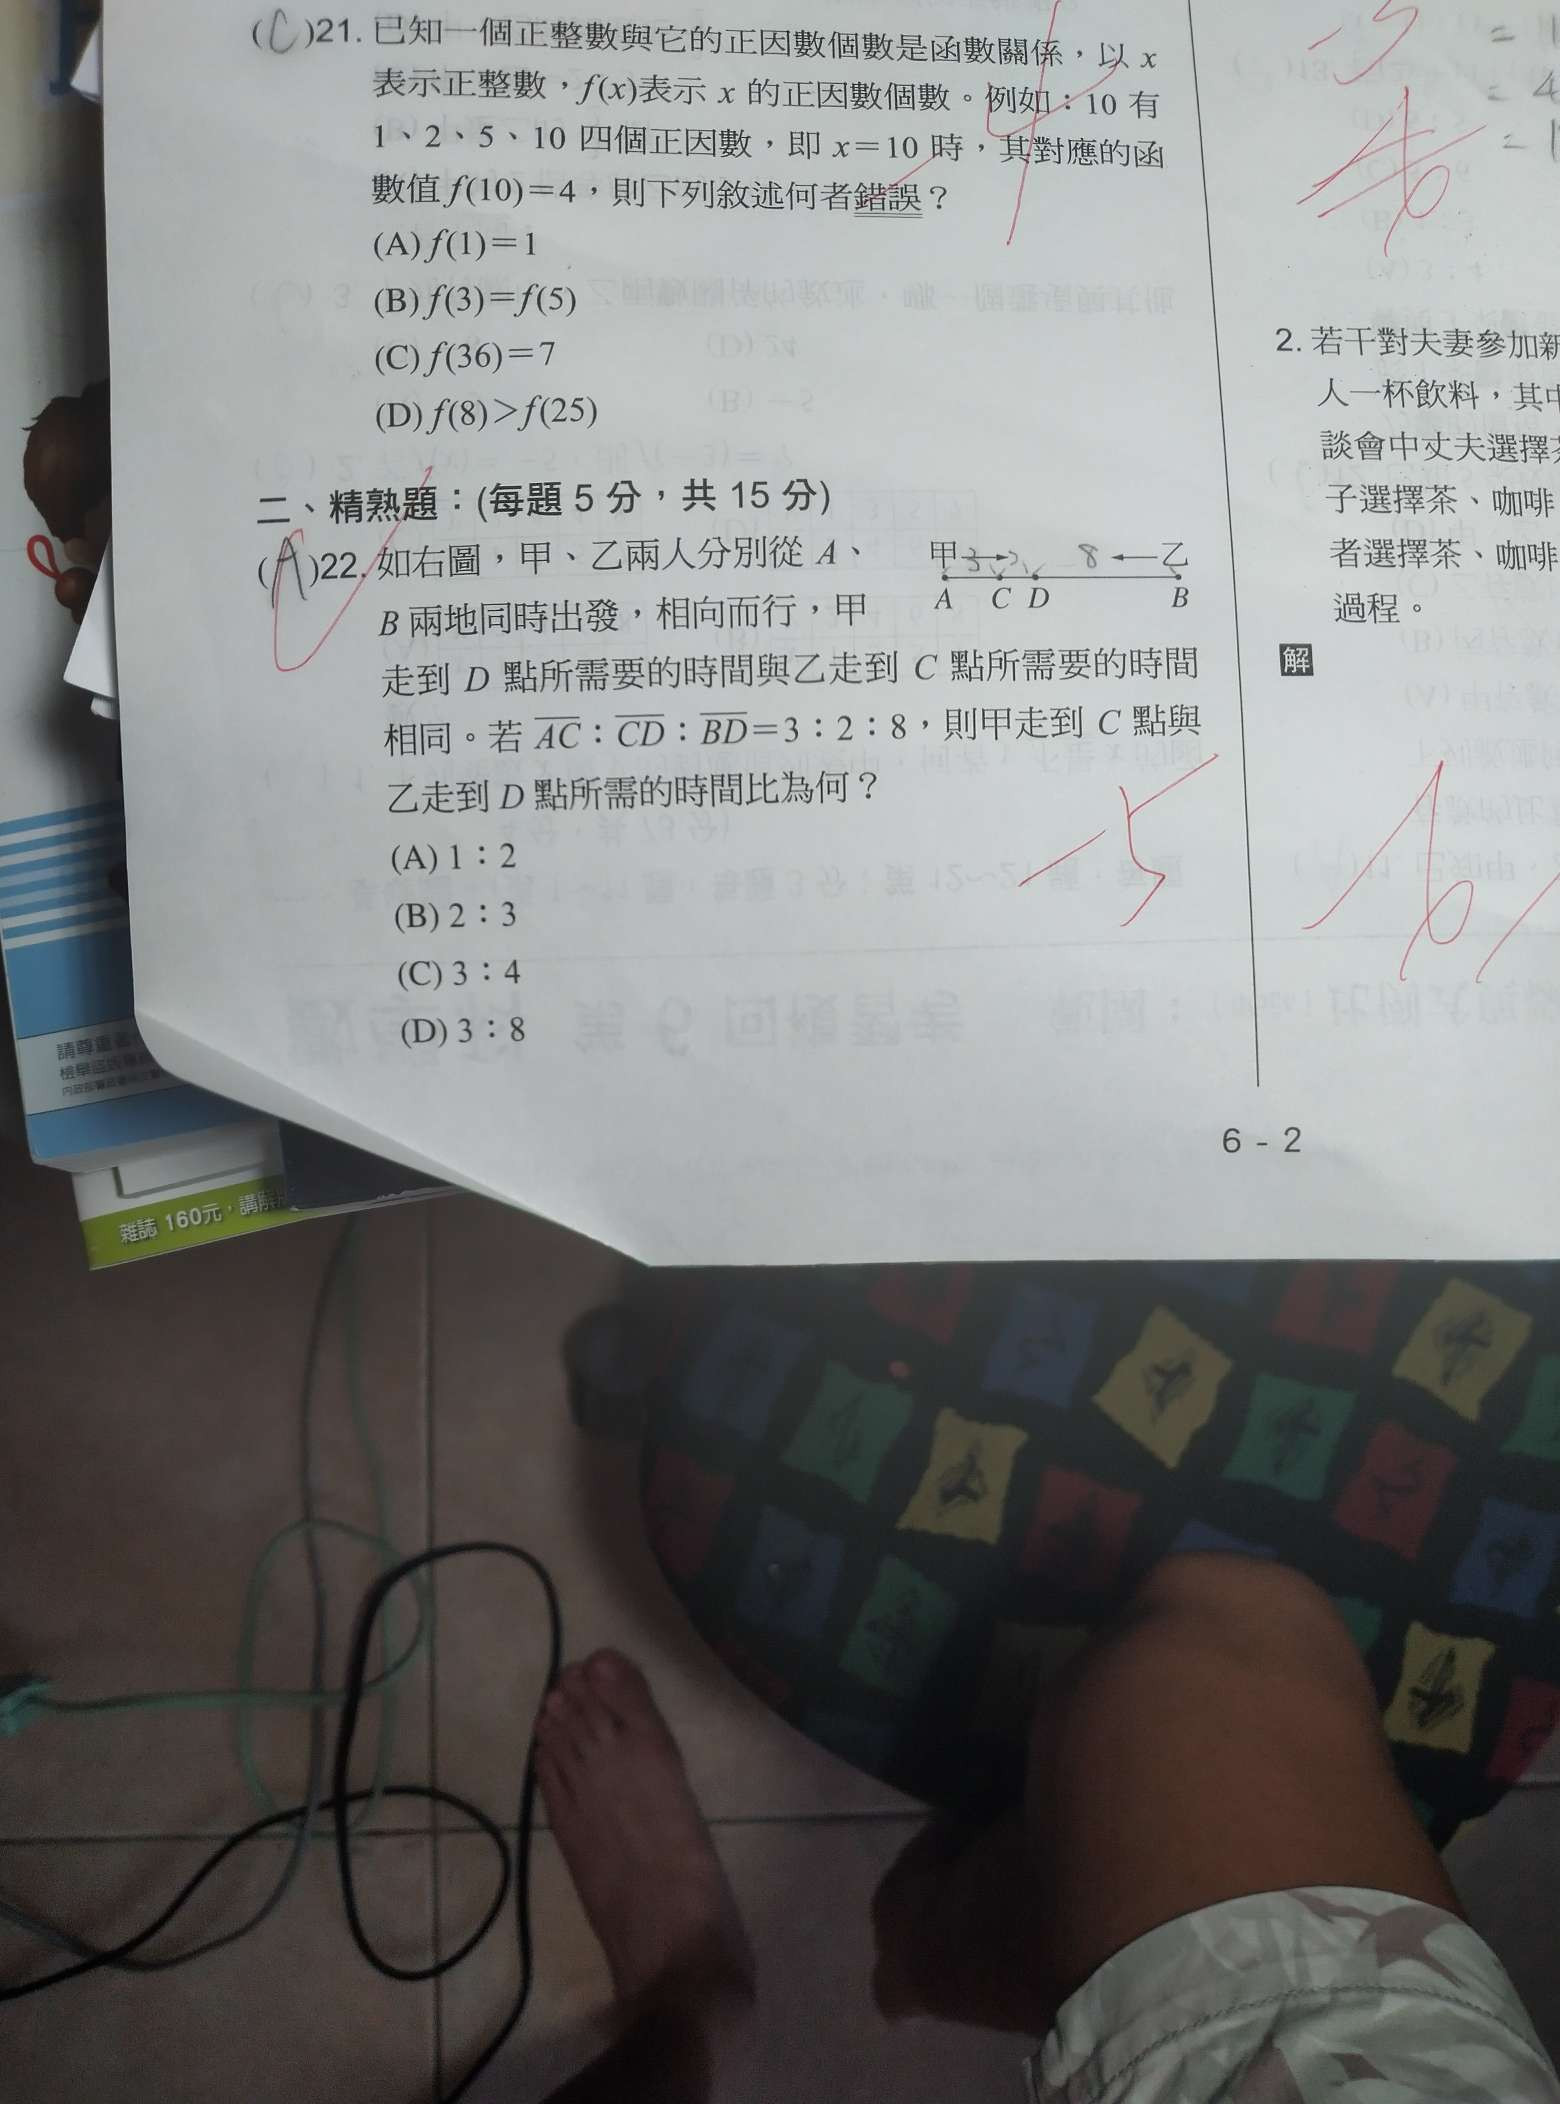 (C)21. 已知一個正整數與它的正因數個數是函數關係，以 x
表示正整數，f(x)表示 x 的正因數個數。例如：10 有
1、2、5、10 四個正因數，即 x＝10 時，其對應的函
數值 f(10)＝4，則下列敘述何者錯誤？
(A) f(1)＝1
(B) f(3)＝f(5)
(C) f(36)＝7
(D) f(8)＞f(25)
二、精熟題：(每題 5 分，共 15 分)
(A)22. 如右圖，甲、乙兩人分別從 A、
B 兩地同時出發，相向而行，甲
走到 D 點所需要的時間與乙走到 C 點所需要的時間
相同。若 AC：CD：BD＝3：2：8，則甲走到 C 點與
乙走到 D 點所需的時間比為何？
(A) 1：2
(B) 2：3
(C) 3：4
(D) 3：8
甲 3 8 乙
A C D B
-4
-5
2. 若干對夫妻參加新
人一杯飲料，其中
談會中丈夫選擇茶
子選擇茶、咖啡
者選擇茶、咖啡
過程。
解
-6
6 - 2
請尊重
雜誌 160元，講解